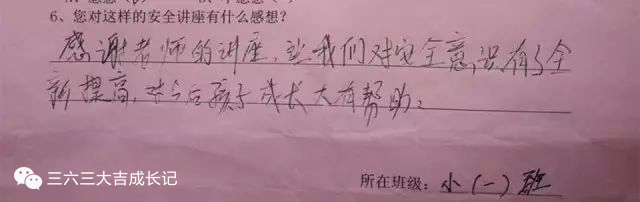 6、您对这样的安全讲座有什么感想?
感谢老师的讲座,让我们对安全意识有了全
新提高,对今后孩子成长大有帮助。
所在班级:小(一)班
三六三大吉成长记